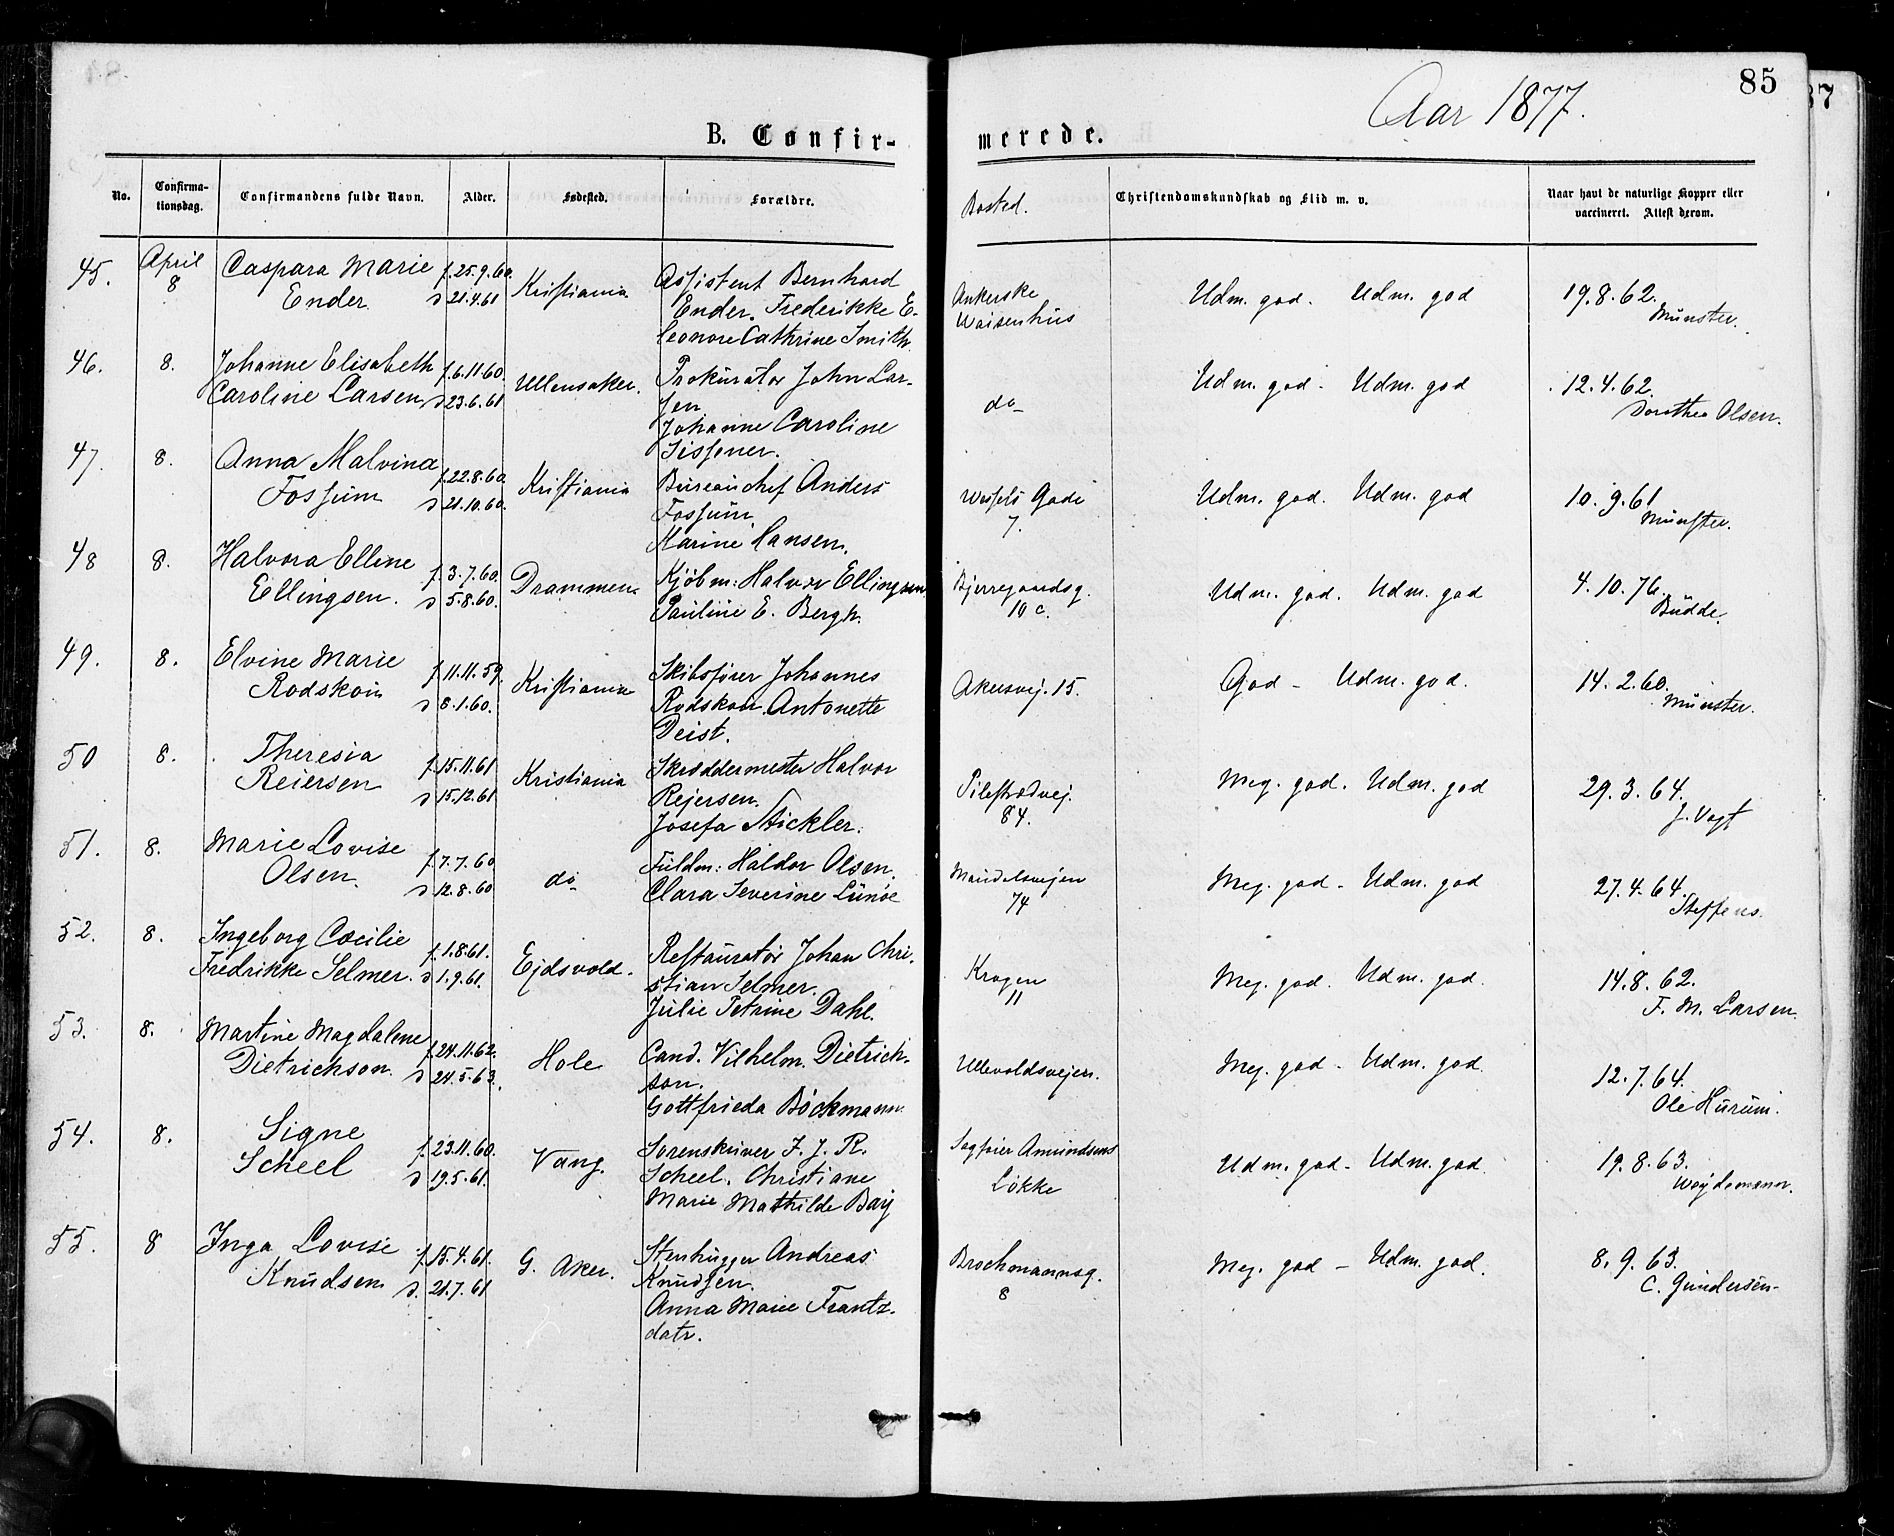 85
Aar 1877.
B. Confir- merede.
No. Confirma-tionsdag. Confirmandens fulde Navn. Alder. Fødested. Forældre. Bosted. Christendomskundskab og Flid m. v. Naar havt de naturlige Kopper eller vaccineret. Attest derom.
45. April 8 Caspara Marie f. 25.9.60. Kristiania Assistent Bernhard Ankerske Udm. god. Udm. god 19.8.62.
Ender d 21.4.61 Ender. Frederikke E- Waisenhus Münster.
leonore Cathrine Smith.
46. 8. Johanne Elisabeth f. 6.11.60. Ullensaker. Prokurator John Lar- do Udm. god. Udm. god 12.4.62.
Caroline Larsen d 23.6.61 sen Dorothea Olsen.
Johanne Caroline
47. 8. Anna Malvina f. 22.8.60. Kristiania Bureauchef Anders Wessels Gade Udm. god. Udm. god 10.9.61
Fossum d 21.10.60. Fossum. 7. Münster.
Karine Hansen.
48 8. Halvora Elline f. 3.7.60. Drammen Kjøbm: Halvor Ellingsen Bjerregaardsg. Udm. god. Udm. god 4.10.76.
Ellingsen. d 5.8.60. Pauline E. Bergh. 10 c. Budde.
49. 8. Elvine Marie f. 11.11.59. Kristiania Skibsfører Johannes Akersvej. 15. God - Udm. god. 14.2.60.
Rodskou d 8.1.60. Rodskou. Antonette Münster.
Deist.
50 8. Theresia f. 15.11.61 Kristiania Skræddermester Halvor Pilestrædvej. Meg. god. Udm. god 29.3.64.
Reiersen d 15.12.61 Reiersen. 84. J. Vogt
Josefa Stickler.
51. 8. Marie Lovise f. 7.7.60 do Fuldm: Haldor Olsen. Maridalsvejen Meg. god - Udm. god 27.4.64.
Olsen. d 12.8.60 Clara Severine Lunøe 74 Steffens.
52. 8. Ingeborg Cæcilie f. 1.8.61. Ejdsvold. Restauratør Johan Chri- Krogen Meg. god. Udm. god. 14.8.62.
Fredrikke Selmer. d 1.9.61. stian Selmer. 11 F. M. Larsen.
Julie Petrine Dahl.
53. 8. Martine Magdalene f. 24.11.62. Hole Cand. Vilhelm Dietrich- Ullevoldsvejen. Meg. god - Udm. god. 12.7.64.
Dietrichson. d 24.5.63. son. Ole Hurum.
Gottfrieda Böckmann
54. 8. Signe f. 23.11.60. Vang. Sorenskriver F. J. R. Sagfører Amundsens Udm. god - Udm. god. 19.8.63.
Scheel d 19.5.61. Scheel. Christiane Løkke Weydemann.
Marie Mathilde Bay
55. 8 Inga Lovise f. 15.4.61. G. Aker. Stenhugger Andreas Brochmannsg. Meg. god - Udm. god. 8.9.63.
Knudsen d. 21.7.61 Knudsen. 8 C. Gundersen-
Anna Marie Frantz-
datr.